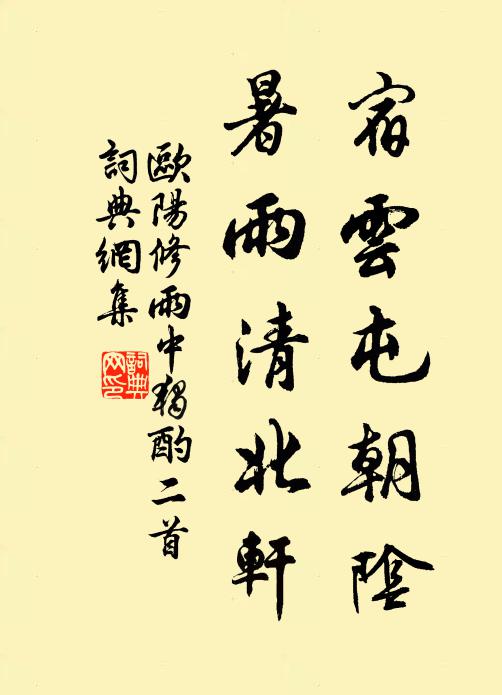 宿雲屯朝陰
暑雨清北軒
歐陽修雨中獨酌二首
詞典網集
詞典网印